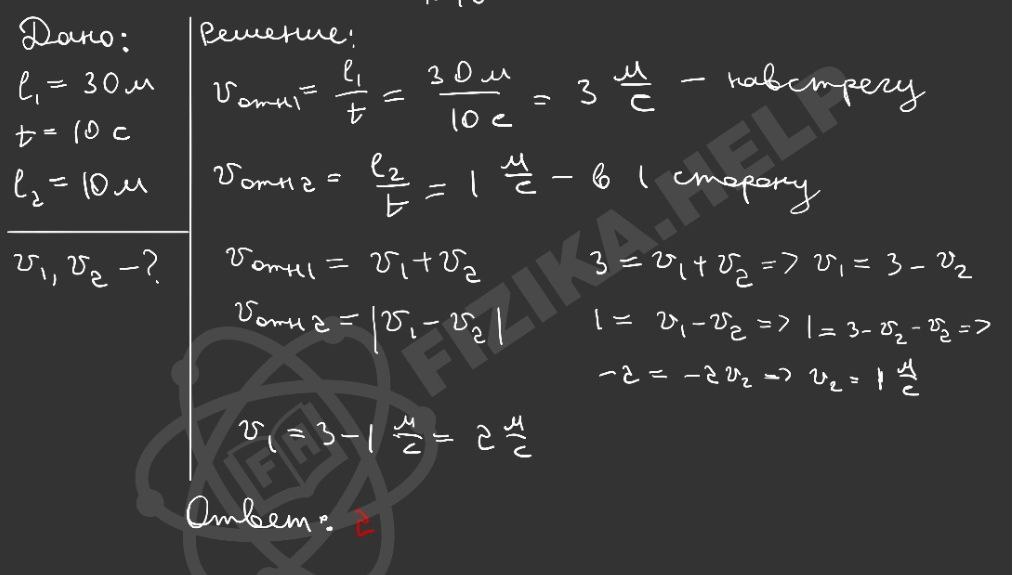 Дано:
l₁ = 30 м
t = 10 с
l₂ = 10 м
v₁, v₂ – ?
Решение:
vотн1 = l₁/t = 30 м/10 с = 3 м/с – навстречу
vотн2 = l₂/t = 1 м/с – в 1 сторону
vотн1 = v₁ + v₂
3 = v₁ + v₂ => v₁ = 3 – v₂
vотн2 = |v₁ – v₂|
1 = v₁ – v₂ => 1 = 3 – v₂ – v₂ =>
–2 = –2v₂ => v₂ = 1 м/с
v₁ = 3 – 1 м/с = 2 м/с
Ответ: 2
FIZIKA.HELP